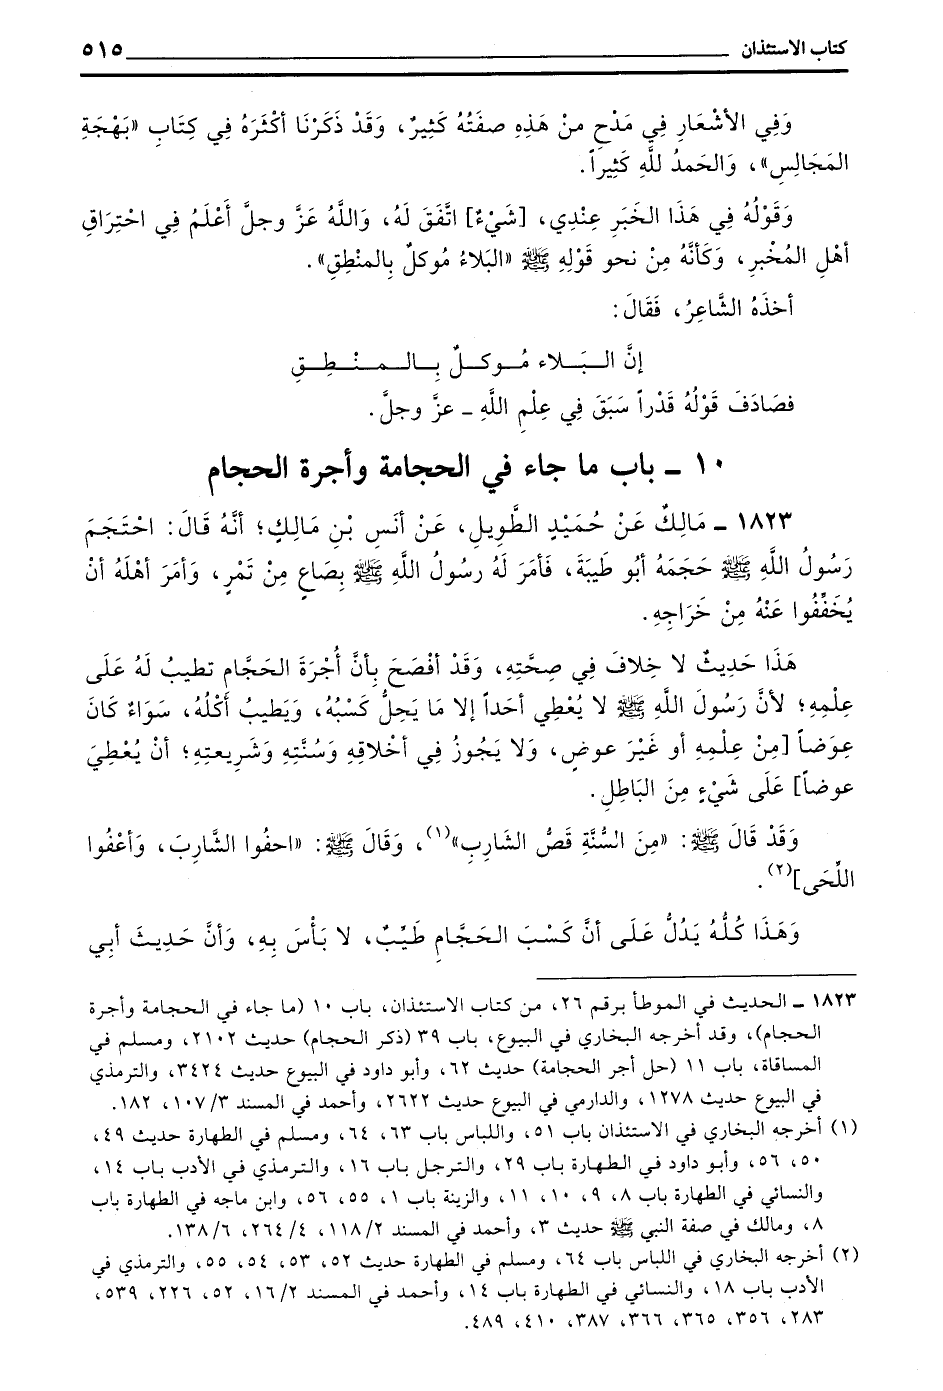 كتاب الاستئذان ٥١٥
وَفِي الأشْعَارِ فِي مَدْحِ منْ هَذِهِ صفَتُهُ كَثِيرٌ، وَقَدْ ذَكَرْنَا أكْثَرَهُ فِي كِتَابِ «بَهْجَةِ
المَجَالِسِ»، وَالحَمدُ للَّهِ كَثِيراً.
وَقَوْلُهُ فِي هَذَا الخَبَرِ عِنْدِي، [شَيْءٌ] اتَّفَقَ لَهُ، وَاللَّهُ عَزَّ وجلَّ أَعْلَمُ فِي احْتِرَاقِ
أهْلِ المُخْبرِ، وَكَأنَّهُ مِنْ نحو قَوْلِهِ ﷺ «البَلاءُ مُوكلٌ بِالمنْطِقِ».
أخذَهُ الشَّاعِرُ، فَقَالَ:
إنَّ البَلاء مُوكلٌ بِالمنْطِقِ
فصَادَفَ قَوْلُهُ قَدْراً سَبَقَ فِي عِلْمِ اللَّهِ ـ عزَّ وجلَّ.
١٠ ـ باب ما جاء في الحجامة وأجرة الحجام
١٨٢٣ ـ مَالِكٌ عَنْ حُمَيْدٍ الطَّوِيلِ، عَنْ أنَسِ بْنِ مَالِكٍ؛ أنَّهُ قَالَ: احْتَجَمَ
رَسُولُ اللَّهِ ﷺ حَجَمَهُ أبُو طَيبَةَ، فَأمَرَ لَهُ رسُولُ اللَّهِ ﷺ بِصَاعٍ مِنْ تَمْرٍ، وَأمَرَ أهْلَهُ أنْ
يُخَفِّفُوا عَنْهُ مِنْ خَرَاجِهِ.
هَذَا حَدِيثٌ لا خِلافَ فِي صحَّتِهِ، وَقَدْ أفْصَحَ بِأنَّ أُجْرَةَ الحَجَّام تطيبُ لَهُ عَلَى
عِلْمِهِ؛ لأنَّ رَسُولَ اللَّهِ ﷺ لا يُعْطِي أحَداً إلا مَا يَحِلُّ كَسْبُهُ، وَيَطِيبُ أكْلُهُ، سَوَاءٌ كَانَ
عِوَضاً [مِنْ عِلْمِهِ أو غَيْرَ عوضٍ، وَلا يَجُوزُ فِي أخْلاقِهِ وَسُنَّتِهِ وَشَرِيعتِهِ؛ أنْ يُعْطِيَ
عوضاً] عَلَى شَيْءٍ مِنَ البَاطِلِ.
وَقَدْ قَالَ ﷺ: «مِنَ السُّنَّةِ قَصُّ الشَارِبِ»(١)، وَقَالَ ﷺ: «احفُوا الشَّارِبَ، وَأعْفُوا
اللِّحَى](٢).
وَهَذَا كُلُّهُ يَدُلُّ عَلَى أنَّ كَسْبَ الحَجَّامِ طَيِّبٌ، لا بَأْسَ بِهِ، وَأنَّ حَدِيثَ أبِي
١٨٢٣ ـ الحديث في الموطأ برقم ٢٦، من كتاب الاستئذان، باب ١٠ (ما جاء في الحجامة وأجرة
الحجام)، وقد أخرجه البخاري في البيوع، باب ٣٩ (ذكر الحجام) حديث ٢١٠٢، ومسلم في
المساقاة، باب ١١ (حل أجر الحجامة) حديث ٦٢، وأبو داود في البيوع حديث ٣٤٢٤، والترمذي
في البيوع حديث ١٢٧٨، والدارمي في البيوع حديث ٢٦٢٢، وأحمد في المسند ١٠٧/٣، ١٨٢.
(١) أخرجه البخاري في الاستئذان باب ٥١، واللباس باب ٦٣، ٦٤، ومسلم في الطهارة حديث ٤٩،
٥٠، ٥٦، وأبو داود في الطهارة باب ٢٩، والترجل باب ١٦، والترمذي في الأدب باب ١٤،
والنسائي في الطهارة باب ٨، ٩، ١٠، ١١، والزينة باب ١، ٥٥، ٥٦، وابن ماجه في الطهارة باب
٨، ومالك في صفة النبي ﷺ حديث ٣، وأحمد في المسند ١١٨/٢، ٢٦٤/٤، ١٣٨/٦.
(٢) أخرجه البخاري في اللباس باب ٦٤، ومسلم في الطهارة حديث ٥٢، ٥٣، ٥٤، ٥٥، والترمذي في
الأدب باب ١٨، والنسائي في الطهارة باب ١٤، وأحمد في المسند ١٦/٢، ٥٢، ٢٢٦، ٥٣٩،
٢٨٣، ٣٥٦، ٣٦٥، ٣٦٦، ٣٨٧، ٤١٠، ٤٨٩.